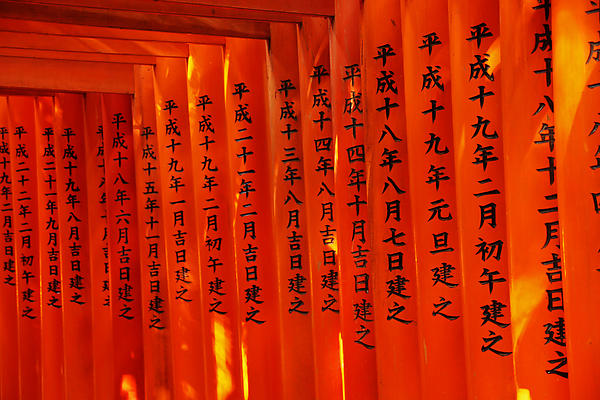 平成十八年十二月吉日建之
平成十九年二月初午建之
平成十九年元旦建之
平成十八年八月七日建之
平成十四年十月吉日建之
平成十四年八月吉日建之
平成十三年八月吉日建之
平成二十一年二月吉日建之
平成十九年二月初午建之
平成十九年一月吉日建之
平成十五年十一月吉日建之
平成十八年六月吉日建之
平成十九年八月吉日建之
平成二十一年九月吉日建之
平成二十二年二月初午建之
平成十九年二月吉日建之